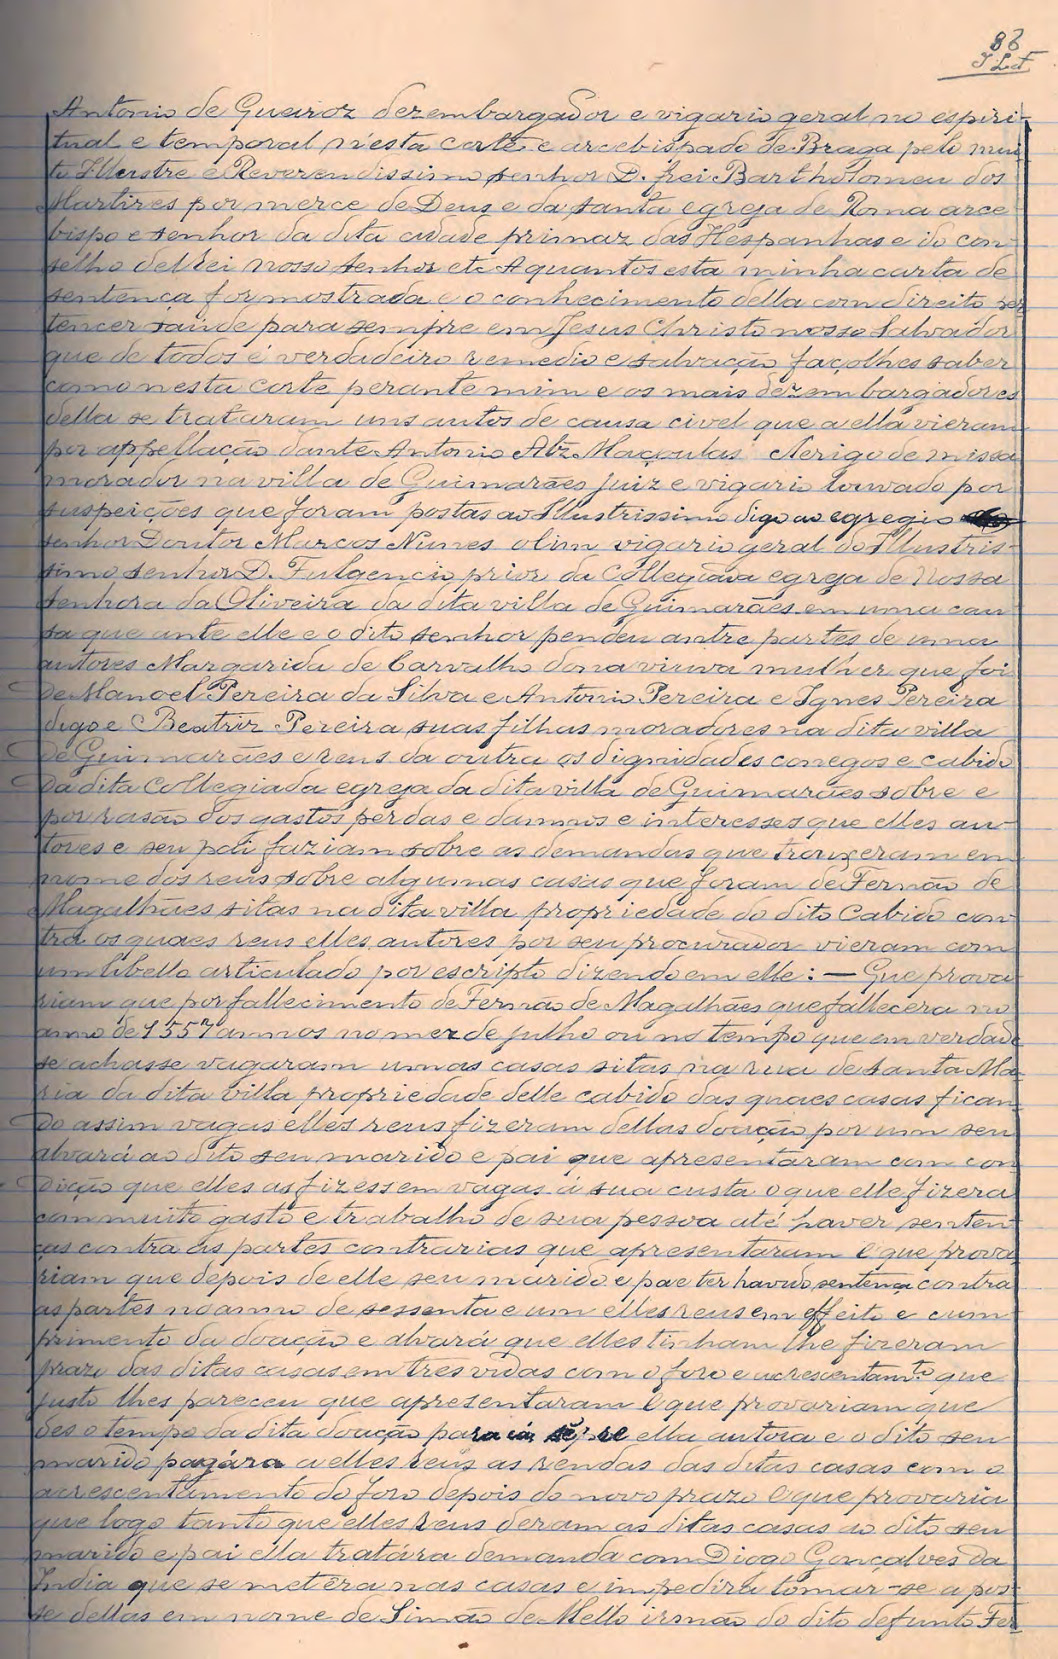 86
Antonio de Queiroz dezembargador e vigario geral no espiri-
tual e temporal n'esta corte e arcebispado de Braga pelo mui-
to Illustre e Reverendissimo senhor D. frei Bartholomeu dos
Martires por merce de Deus e da santa egreja de Roma arce
bispo e senhor da dita cidade primaz das Hespanhas e do con-
selho del rei nosso senhor etc A quantos esta minha carta de
sentença for mostrada e o conhecimento della com direito per
tencer saude para sempre em Jesus Christo nosso Salvador
que de todos é verdadeiro remedio e salvação faço lhes saber
como nesta corte perante mim e os mais dezembargadores
della se trataram uns autos de causa civel que a ella vieram
por appellação dante Antonio Alz. Maçoulas Clerigo de missa
morador na villa de Guimarães juiz e vigario louvado por
suspeições que foram postas ao Illustrissimo digo ao egregio
senhor Doutor Marcos Nunes olim vigario geral do Illustris-
simo senhor D. Fulgencio prior da Collegiada egreja de Nossa
Senhora da Oliveira da dita villa de Guimarães em uma cau
sa que ante elle e o dito senhor pendeu antre partes de uma
autores Margarida de Carvalho dona viuva mulher que foi
de Manoel Pereira da Silva e Antonio Pereira e Ignes Pereira
digo e Beatriz Pereira suas filhas moradores na dita villa
de Guimarães e reus da outra os dignidades conegos e cabido
da dita Collegiada egreja da dita villa de Guimarães sobre e
por rasão dos gastos perdas e damnos e interesses que elles au-
tores e seu pai faziam sobre as demandas que trouxeram em
nome dos reus sobre algumas casas que foram de Fernão de
Magalhães sitas na dita villa propriedade do dito Cabido con
tra os quaes reus elles autores por seu procurador vieram com
um libello articulado por escripto dizendo em elle: — Que prova
riam que por fallecimento de Fernão de Magalhães que fallecera no
anno de 1557 annos no mez de julho ou no tempo que em verdade
se achasse vagaram umas casas sitas na rua de Santa Ma
ria da dita villa propriedade delle cabido das quaes casas fican
do assim vagas elles reus fizeram dellas doação por um seu
alvará ao dito seu marido e pai que apresentaram com con
dicção que elles as fizessem vagas á sua custa o que elle fizera
com muito gasto e trabalho de sua pessoa até haver senten
ças contra as partes contrarias que apresentaram E que prova
riam que depois de elle seu marido e pae ter havido sentença contra
as partes no anno de sessenta e um elles reus em effeito e cum
primento da doação e alvará que elles tinham lhe fizeram
prazo das ditas casas em tres vidas com o foro e acrescentamto que
justo lhes pareceu que apresentaram E que provariam que
des o tempo da dita doação para cá sepre ella autora e o dito seu
marido pagára a elles reus as rendas das ditas casas com o
acrescentamento do foro depois do novo prazo E que provaria
que logo tanto que elles reus deram as ditas casas ao dito seu
marido e pai ella tratára demanda com Diogo Gonçalves da
India que se metera nas casas e impedira tomar-se a pos-
se dellas em nome de Simão de Mello irmão do dito defunto Fer